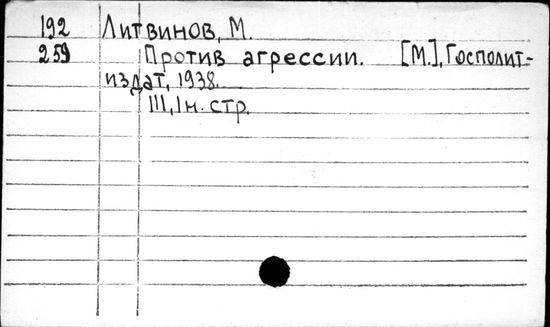 192 Литвинов, М.
259 Против агрессии. [М.], Госполит-
издат, 1938.
111, 1 н. стр.